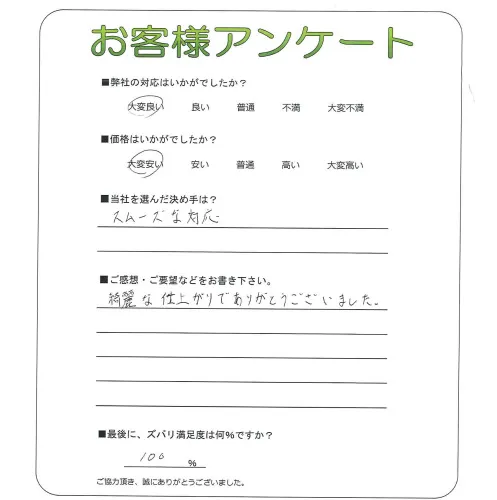 お客様アンケート
■弊社の対応はいかがでしたか？
大変良い 良い 普通 不満 大変不満
■価格はいかがでしたか？
大変安い 安い 普通 高い 大変高い
■当社を選んだ決め手は？
スムーズな対応
■ご感想・ご要望などをお書き下さい。
綺麗な仕上がりでありがとうございました。
■最後に、ズバリ満足度は何％ですか？
100 ％
ご協力頂き、誠にありがとうございました。